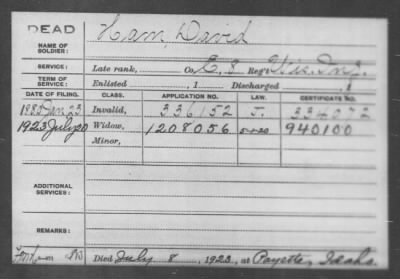 DEAD
NAME OF SOLDIER: Ham, David
SERVICE: Late rank, Co. E. 8 Reg't Wis. Inf.
TERM OF SERVICE: Enlisted , 1 Discharged , 1
DATE OF FILING. CLASS. APPLICATION NO. LAW. CERTIFICATE NO.
Jan 23 Invalid, 336152 334072
1923 July 20 Widow, 1208056 940100
Minor,
ADDITIONAL SERVICES:
REMARKS:
Died July 8, 1923, at Payette, Idaho